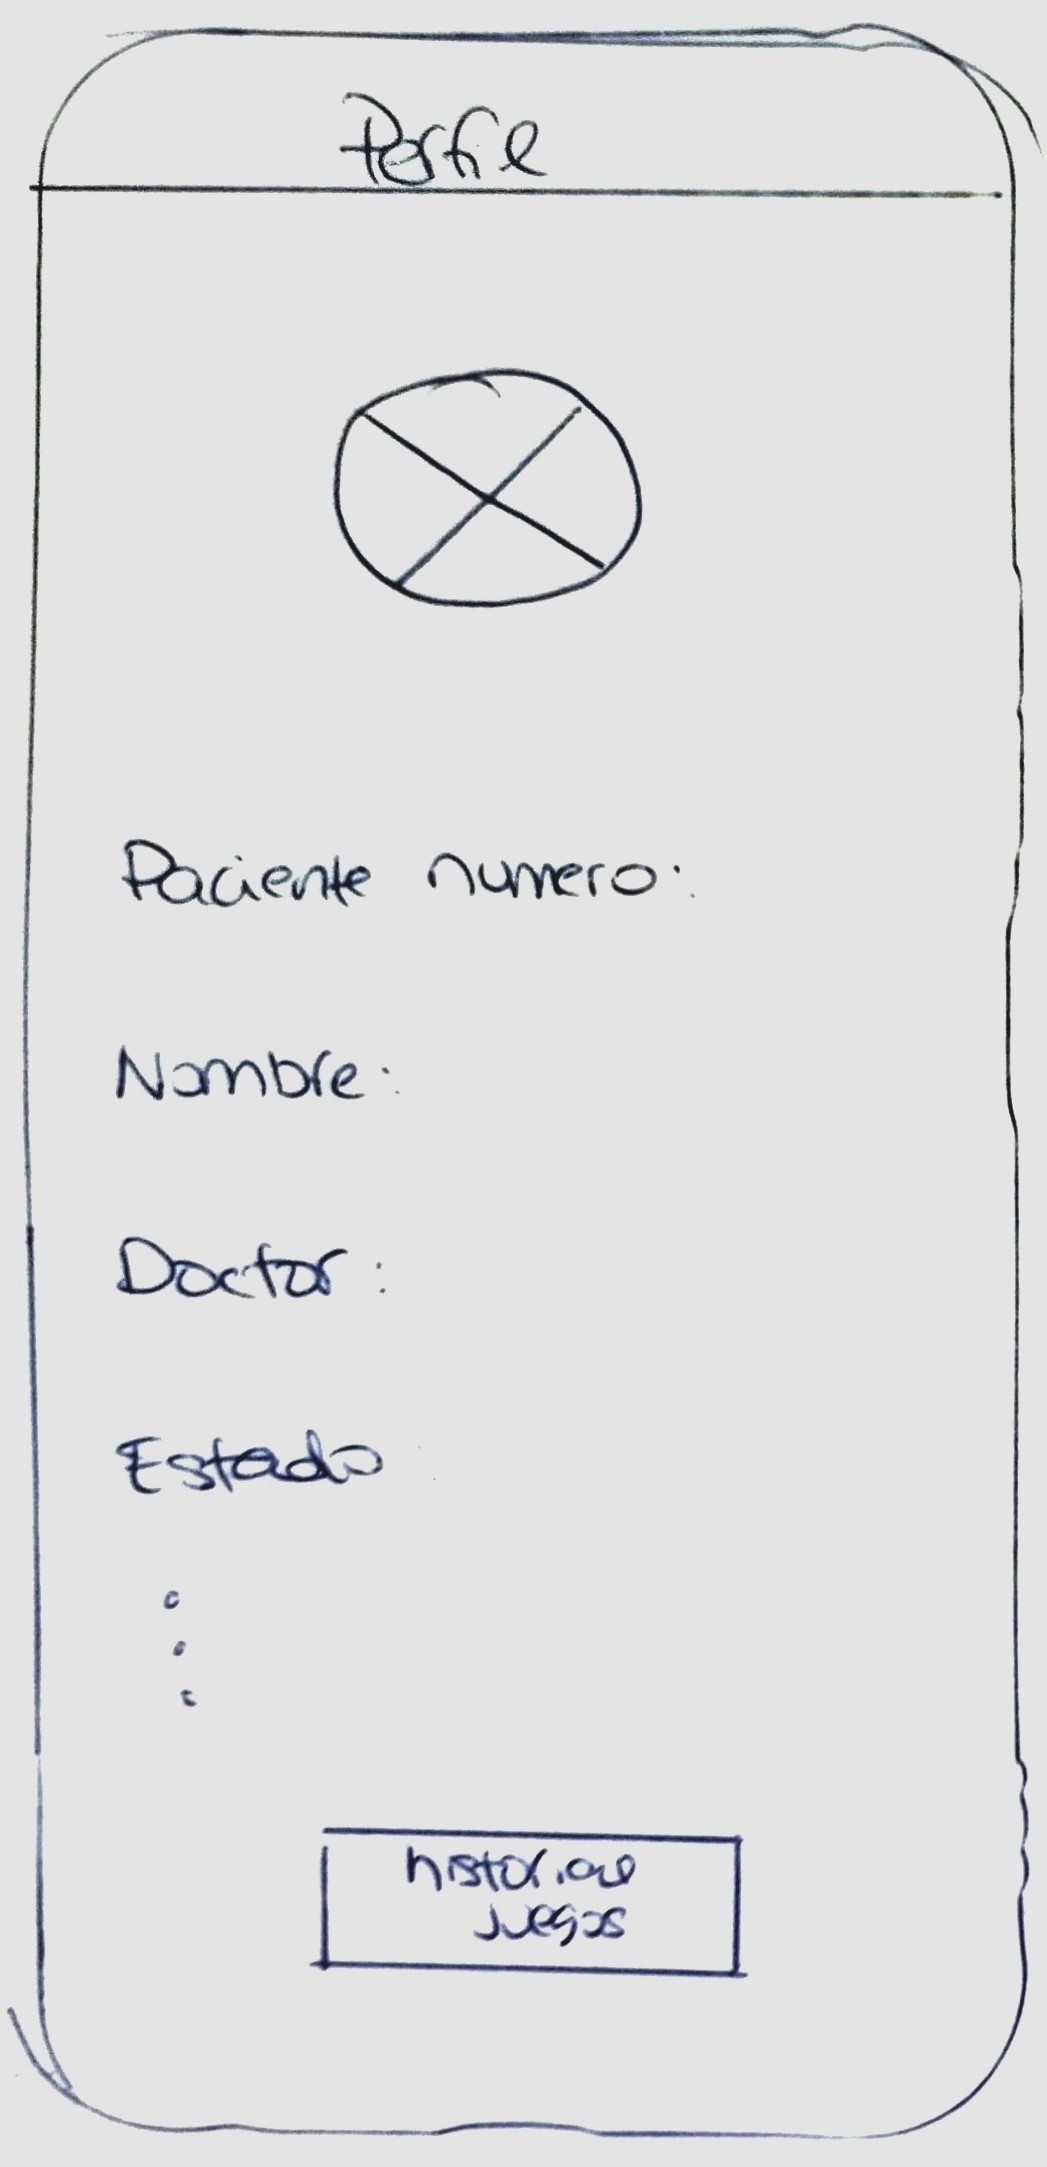 Perfil
Paciente numero:
Nombre:
Doctor:
Estado
historial
juegos